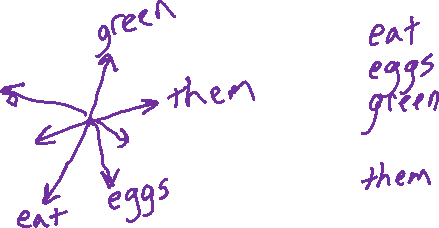 green
them
eat
eggs
eat
eggs
green
them